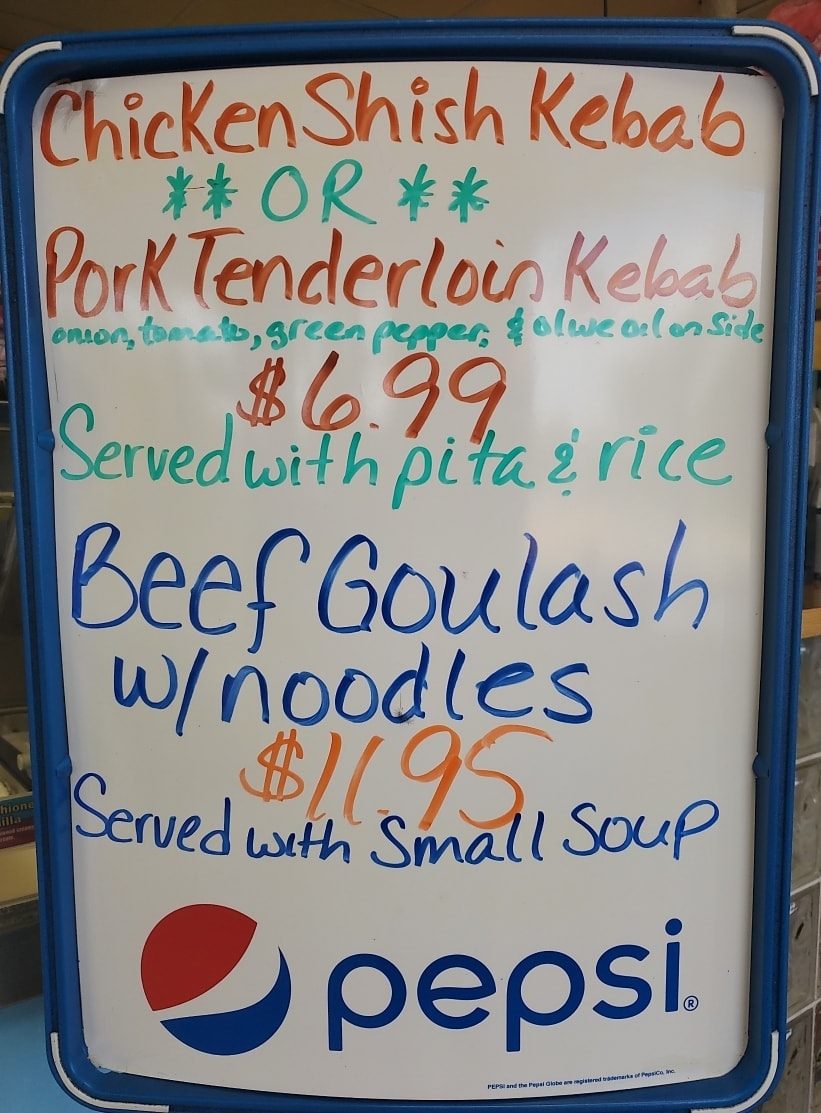 Chicken Shish Kebab
** OR **
Pork Tenderloin Kebab
onion, tomato, green pepper, & olive oil on Side
$6.99
Served with pita & rice
Beef Goulash
w/noodles
$11.95
Served with Small Soup
pepsi®
PEPSI and the Pepsi Globe are registered trademarks of PepsiCo, Inc.